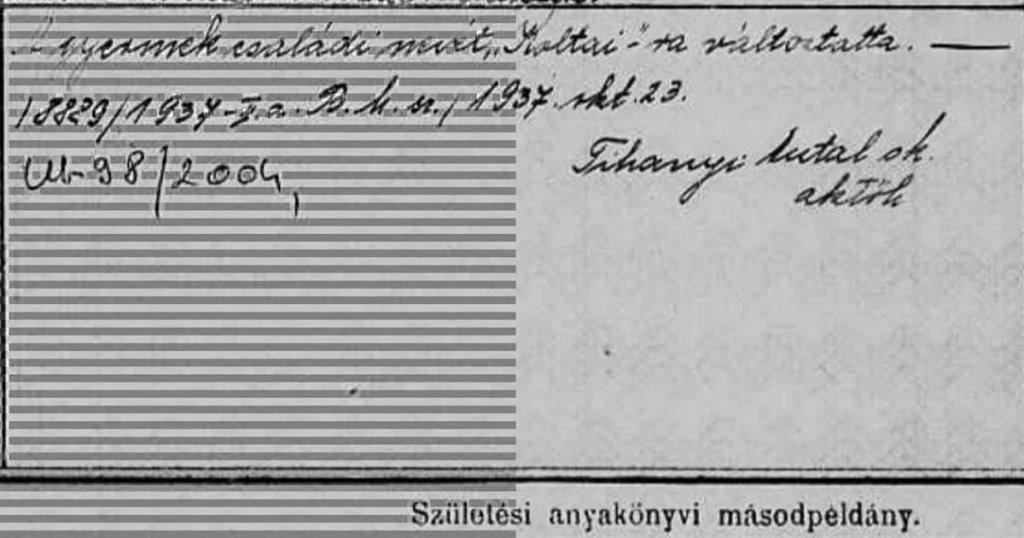 A gyermek családi nevét „Koltai"-ra változtatta. —
/8829/1937-II.a. B.M. sz./ 1937. okt. 23.
98/2004,
Tihanyi Antal sk.
aktőh
Születési anyakönyvi másodpéldány.